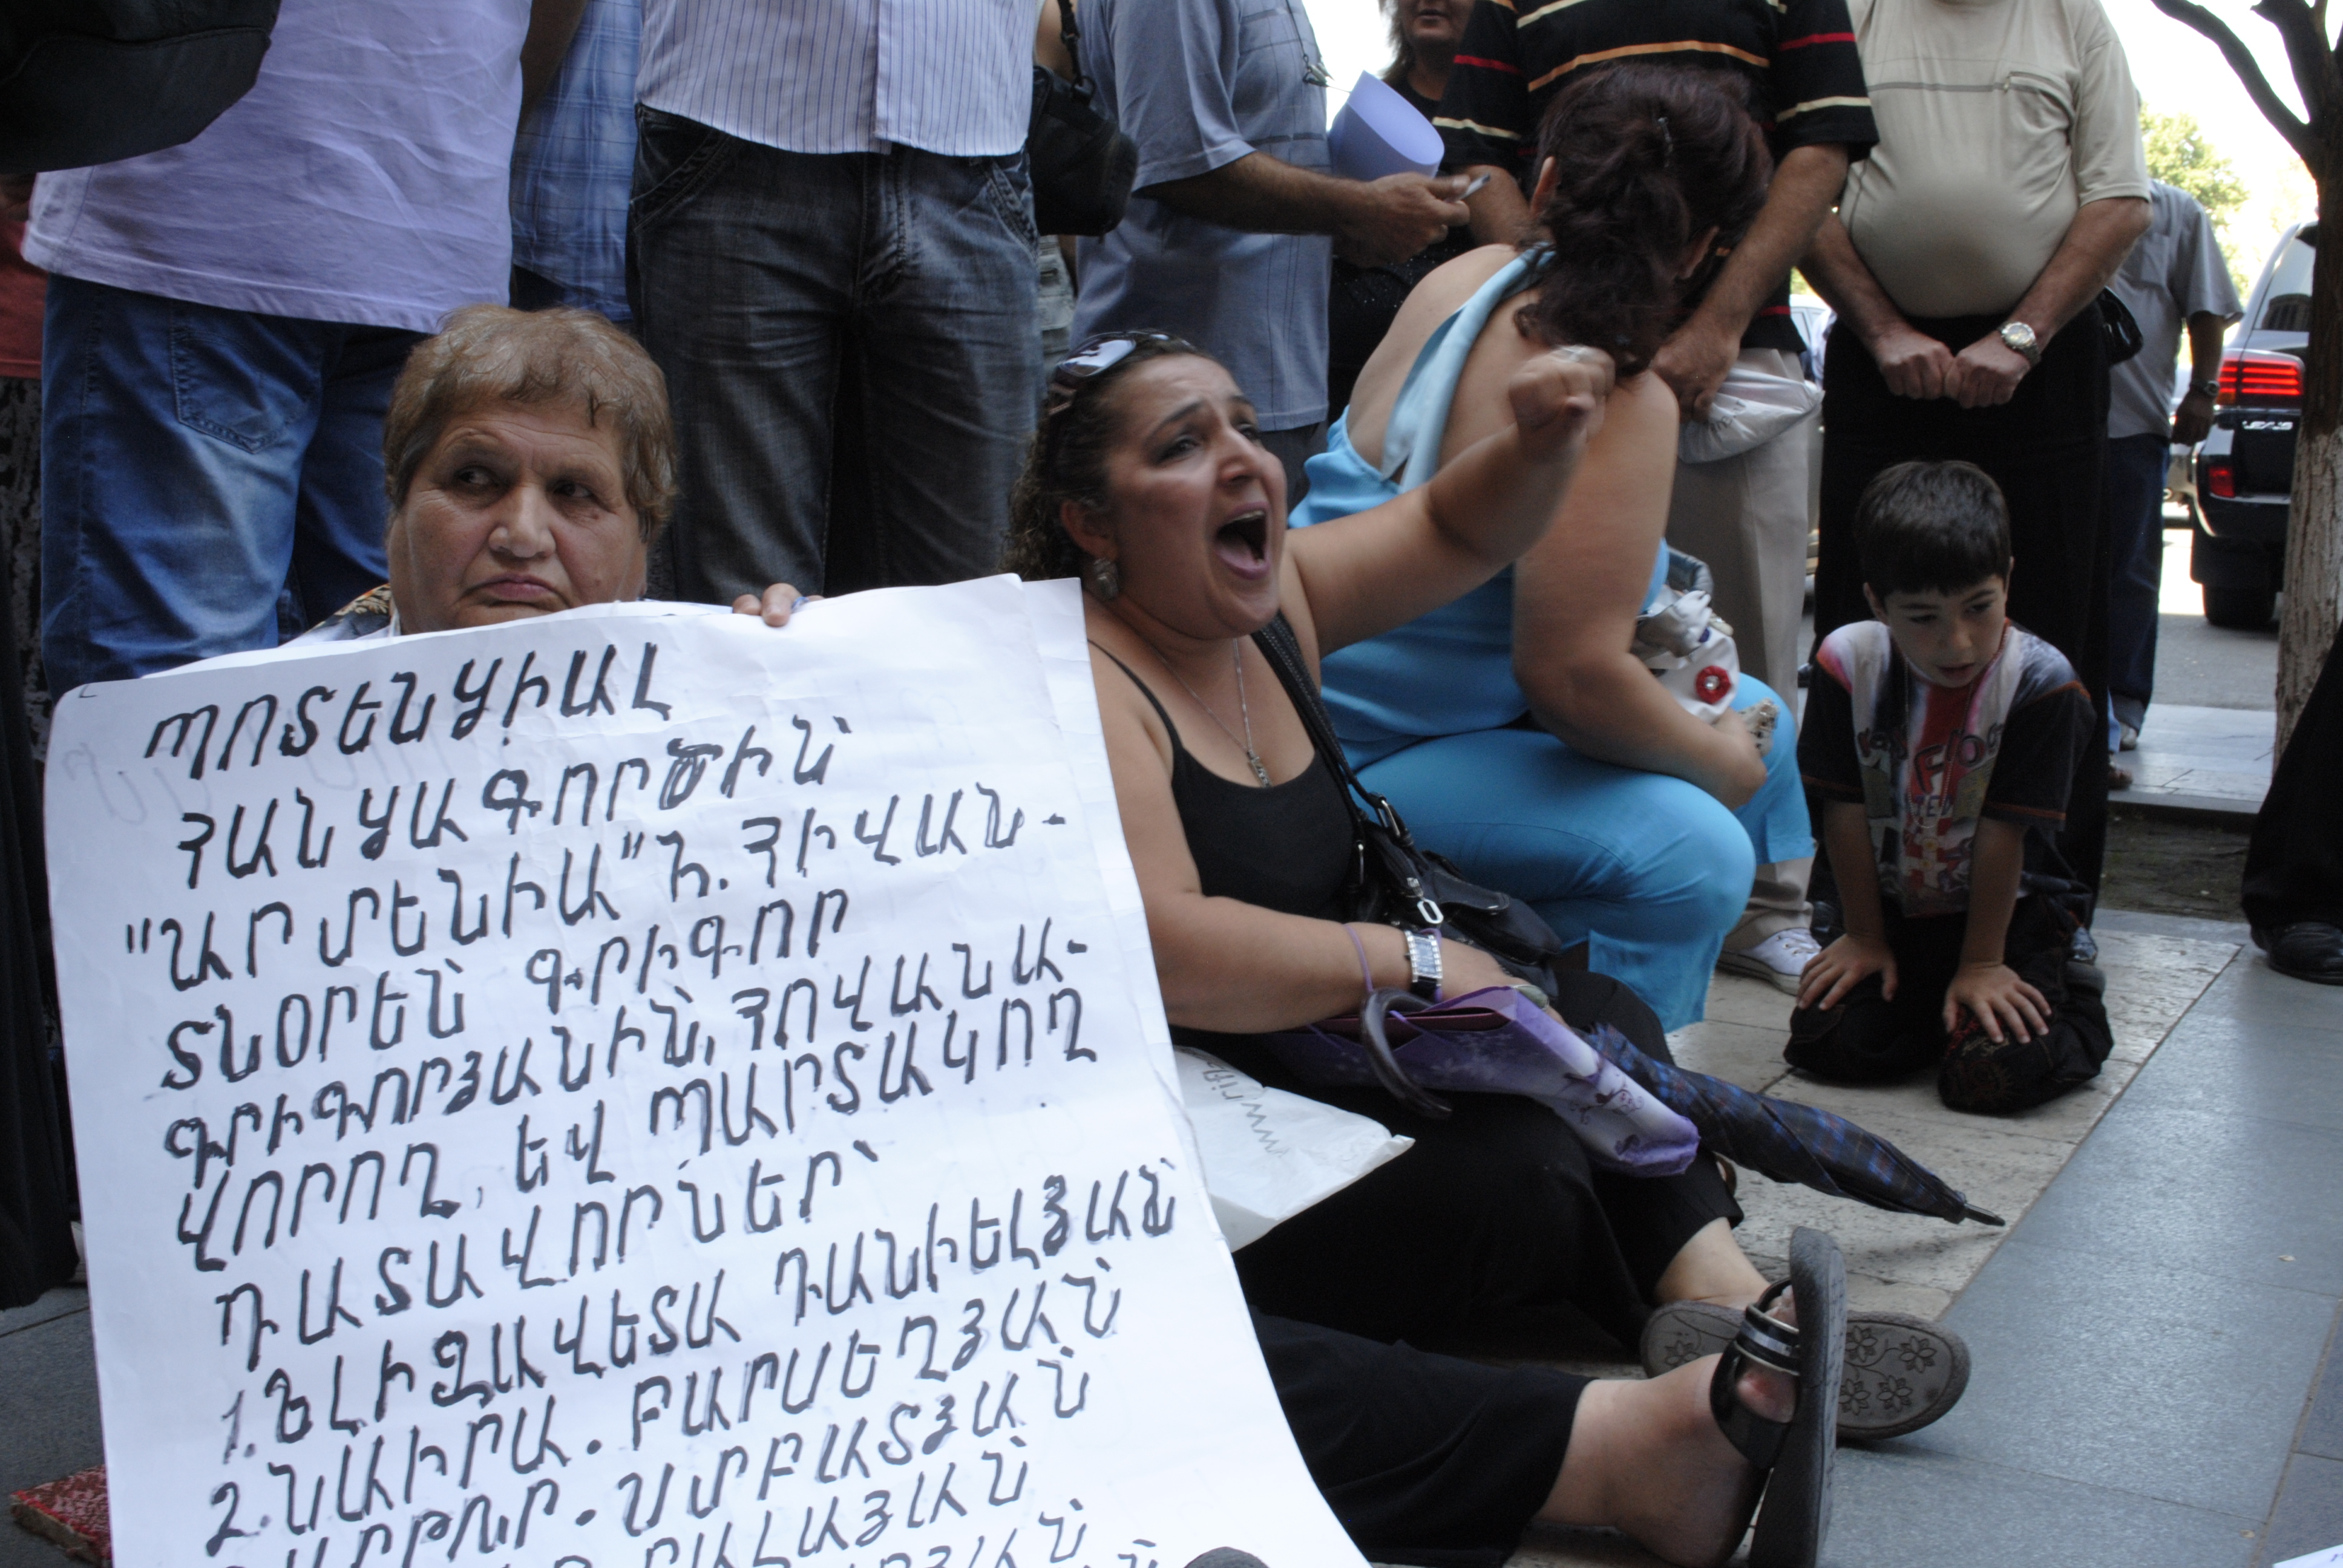 ՊՈՏԵՆՑԻԱԼ
ՀԱՆՑԱԳՈՐԾԻՆ՝
"ԱՐՄԵՆԻԱ" Հ. ՀԻՎԱՆ-
ՏՆՕՐԵՆ ԳՐԻԳՈՐ
ԳՐԻԳՈՐՅԱՆԻՆ, ՀՈՎԱՆԱ-
ՎՈՐՈՂ, ԵՎ ՊԱՐՏԱԿՈՂ
ԴԱՏԱՎՈՐՆԵՐ՝
1. ԵԼԻԶԱՎԵՏԱ ԴԱՆԻԵԼՅԱՆ
2. ՆԱԻՐԱ. ԲԱՐՍԵՂՅԱՆ
ՍՄԲԱՏՅԱՆ
LEXUS